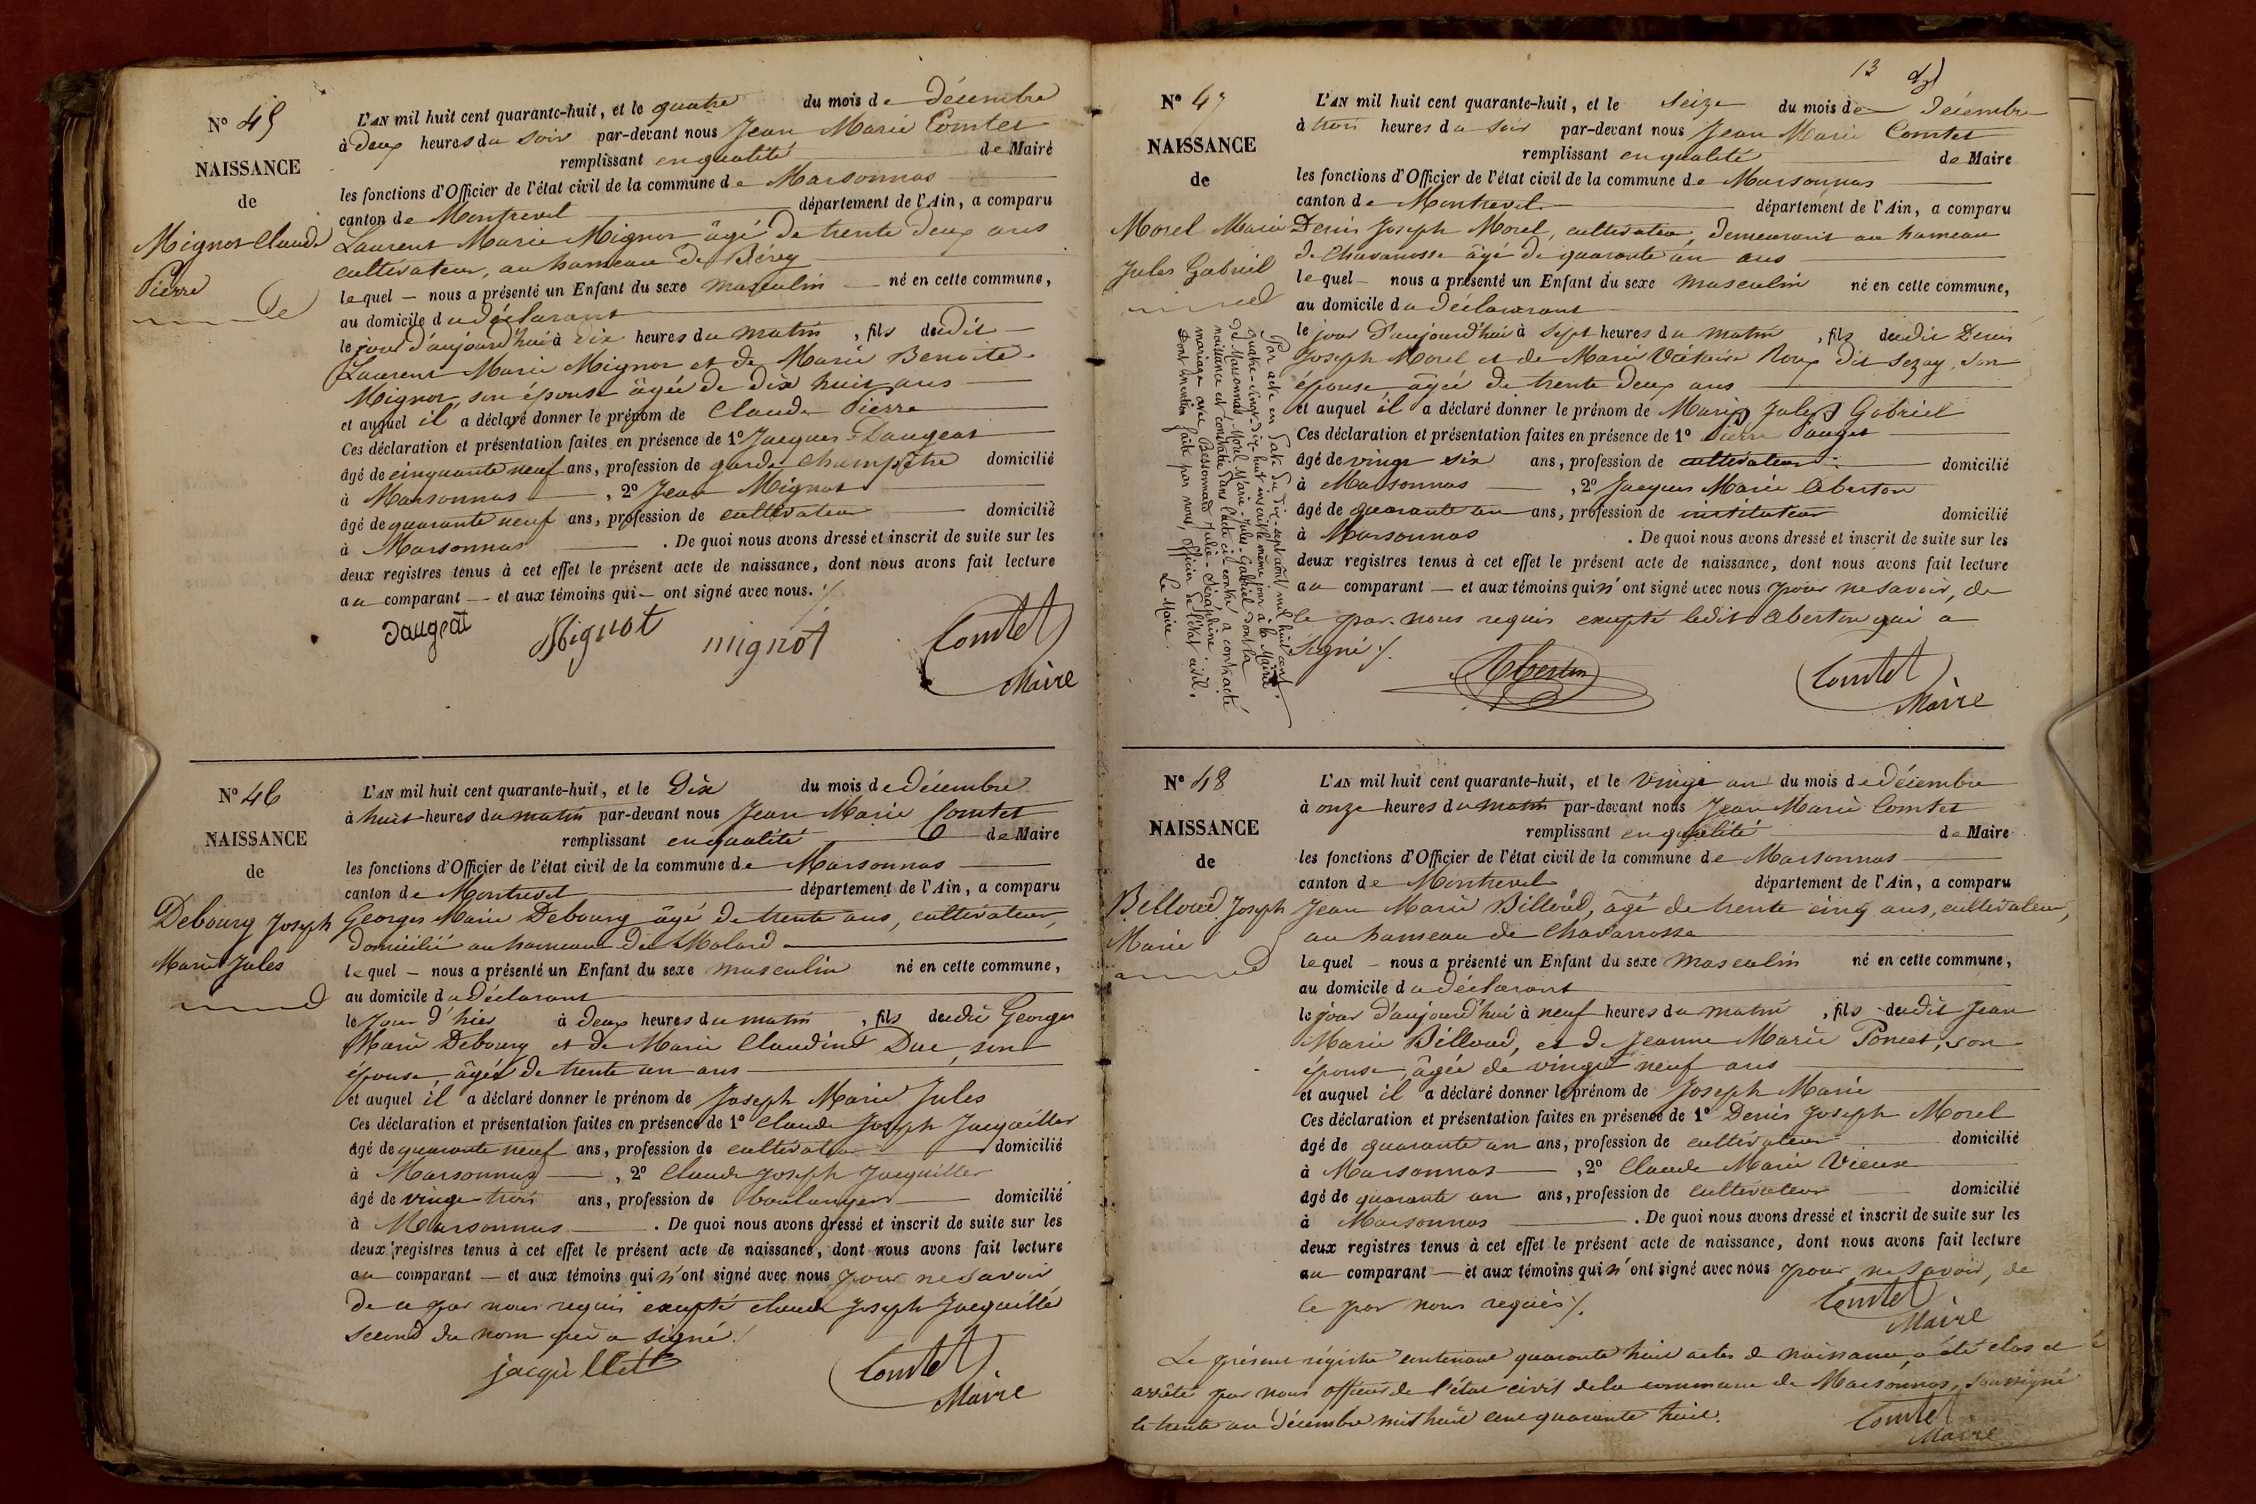 N° 45
NAISSANCE
de
Mignot Claude
Pierre
L'AN mil huit cent quarante-huit, et le quatre du mois de décembre
à deux heures du soir par-devant nous Jean Marie Comtet
remplissant en qualité de Maire
les fonctions d'Officier de l'état civil de la commune de Marsonnas
canton de Montrevel département de l'Ain, a comparu
Laurent Marie Mignot âgé de trente deux ans
cultivateur, au hameau de Bérey
lequel nous a présenté un Enfant du sexe masculin né en cette commune,
au domicile du déclarant
le jour d'aujourd'hui à dix heures du matin, fils dudit
Laurent Marie Mignot et de Marie Benoite
Mignot, son épouse âgée de dix huit ans
et auquel il a déclaré donner le prénom de Claude Pierre
Ces déclaration et présentation faites en présence de 1° Jacques Daugeat
âgé de cinquante neuf ans, profession de garde champêtre domicilié
à Marsonnas, 2° Jean Mignot
âgé de quarante neuf ans, profession de cultivateur domicilié
à Marsonnas. De quoi nous avons dressé et inscrit de suite sur les
deux registres tenus à cet effet le présent acte de naissance, dont nous avons fait lecture
au comparant et aux témoins qui ont signé avec nous.
Daugeat Mignot mignot Comtet
Maire
N° 46
NAISSANCE
de
Debourg Joseph
Marie Jules
L'AN mil huit cent quarante-huit, et le Dix du mois de décembre
à huit heures du matin par-devant nous Jean Marie Comtet
remplissant en qualité de Maire
les fonctions d'Officier de l'état civil de la commune de Marsonnas
canton de Montrevel département de l'Ain, a comparu
Georges Marie Debourg âgé de trente ans, cultivateur,
domicilié au hameau du Molard
lequel nous a présenté un Enfant du sexe masculin né en cette commune,
au domicile du déclarant
le jour d'hier à deux heures du matin, fils dudit Georges
Marie Debourg et de Marie Claudine Duc, son
épouse, âgée de trente un ans
et auquel il a déclaré donner le prénom de Joseph Marie Jules
Ces déclaration et présentation faites en présence de 1° Claude Joseph Jacquiller
âgé de quarante neuf ans, profession de cultivateur domicilié
à Marsonnas, 2° Claude Joseph Jacquiller
âgé de vingt trois ans, profession de boulanger domicilié
à Marsonnas. De quoi nous avons dressé et inscrit de suite sur les
deux registres tenus à cet effet le présent acte de naissance, dont nous avons fait lecture
au comparant et aux témoins qui n'ont signé avec nous pour ne savoir
de ce par nous requis excepté Claude Joseph Jacquillé
second du nom qui a signé
jacquillet Comtet
Maire
13
N° 47
NAISSANCE
de
Morel Marie
Jules Gabriel
L'AN mil huit cent quarante-huit, et le seize du mois de Décembre
à trois heures du soir par-devant nous Jean Marie Comtet
remplissant en qualité de Maire
les fonctions d'Officier de l'état civil de la commune de Marsonnas
canton de Montrevel département de l'Ain, a comparu
Denis Joseph Morel, cultivateur, demeurant au hameau
de Chavanosse âgé de quarante un ans
lequel nous a présenté un Enfant du sexe masculin né en cette commune,
au domicile du déclarant
le jour d'aujourd'hui à sept heures du matin, fils dudit Denis
Joseph Morel et de Marie Victoire Roux dit Sezay, son
épouse âgée de trente deux ans
et auquel il a déclaré donner le prénom de Marie Jules Gabriel
Ces déclaration et présentation faites en présence de 1° Pierre Pauget
âgé de vingt six ans, profession de cultivateur domicilié
à Marsonnas, 2° Jacques Marie Aberton
âgé de quarante un ans, profession de instituteur domicilié
à Marsonnas. De quoi nous avons dressé et inscrit de suite sur les
deux registres tenus à cet effet le présent acte de naissance, dont nous avons fait lecture
au comparant et aux témoins qui n'ont signé avec nous pour ne savoir, de
ce par nous requis excepté ledit Aberton qui a
signé
Aberton Comtet
Maire
Par acte en date du dix-sept août mil huit cent
quatre-vingt-dix-huit inscrit le même jour à la Mairie
de Marsonnas, Morel Marie-Jules-Gabriel dont la
naissance est constatée dans l'acte ci-contre, a contracté
mariage avec Bessonnard Julie-Séraphine.
Dont mention faite par nous, officier de l'état civil.
Le Maire.
N° 48
NAISSANCE
de
Belloud Joseph
Marie
L'AN mil huit cent quarante-huit, et le vingt un du mois de décembre
à onze heures du matin par-devant nous Jean Marie Comtet
remplissant en qualité de Maire
les fonctions d'Officier de l'état civil de la commune de Marsonnas
canton de Montrevel département de l'Ain, a comparu
Jean Marie Billoud, âgé de trente cinq ans, cultivateur,
au hameau de Chavannosse
lequel nous a présenté un Enfant du sexe masculin né en cette commune,
au domicile du déclarant
le jour d'aujourd'hui à neuf heures du matin, fils dudit Jean
Marie Billoud, et de Jeanne Marie Poncet, son
épouse, âgée de vingt neuf ans
et auquel il a déclaré donner le prénom de Joseph Marie
Ces déclaration et présentation faites en présence de 1° Denis Joseph Morel
âgé de quarante un ans, profession de cultivateur domicilié
à Marsonnas, 2° Claude Marie Vieux
âgé de quarante un ans, profession de cultivateur domicilié
à Marsonnas. De quoi nous avons dressé et inscrit de suite sur les
deux registres tenus à cet effet le présent acte de naissance, dont nous avons fait lecture
au comparant et aux témoins qui n'ont signé avec nous pour ne savoir, de
ce par nous requis
Comtet
Maire
Le présent régistre contenant quarante huit actes de naissance, a été clos et
arrêté par nous officier de l'état civil de la commune de Marsonnas, soussigné
le trente un décembre mil huit cent quarante huit.
Comtet
Maire